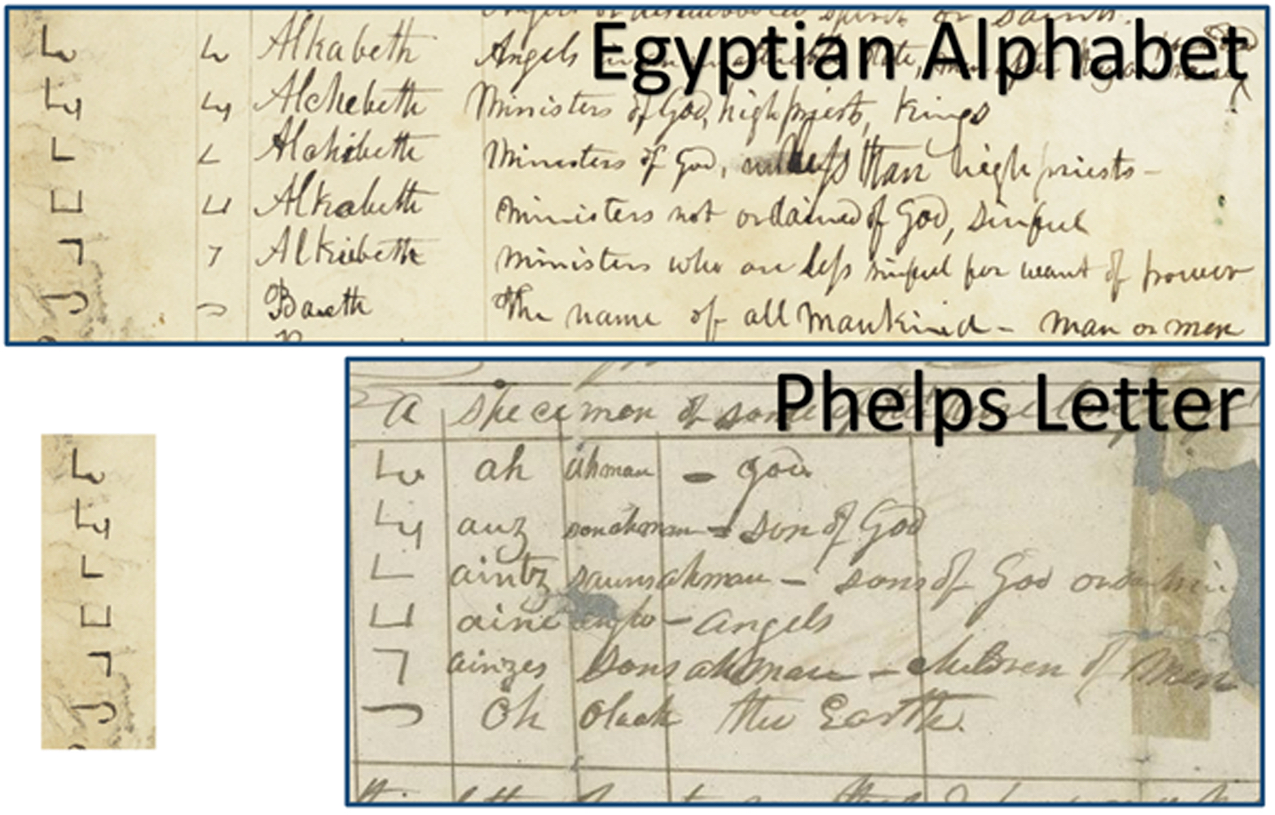 Egyptian Alphabet
Alkabeth Angels
Alchebeth Ministers of God, high priests, Kings
Alchibeth Ministers of God, less than high priests-
Alkabeth Ministers not ordained of God, sinful
Alkiebeth Ministers who are less sinful for want of power
Baeth The name of all mankind - man or men
Phelps Letter
A specimen of some of the
ah ahman - god
auz sonahman - Son of God
aintz saunsahman - sons of God
aine - Angels
ainzes sons ahman - children of Men
oh oleah the Earth.